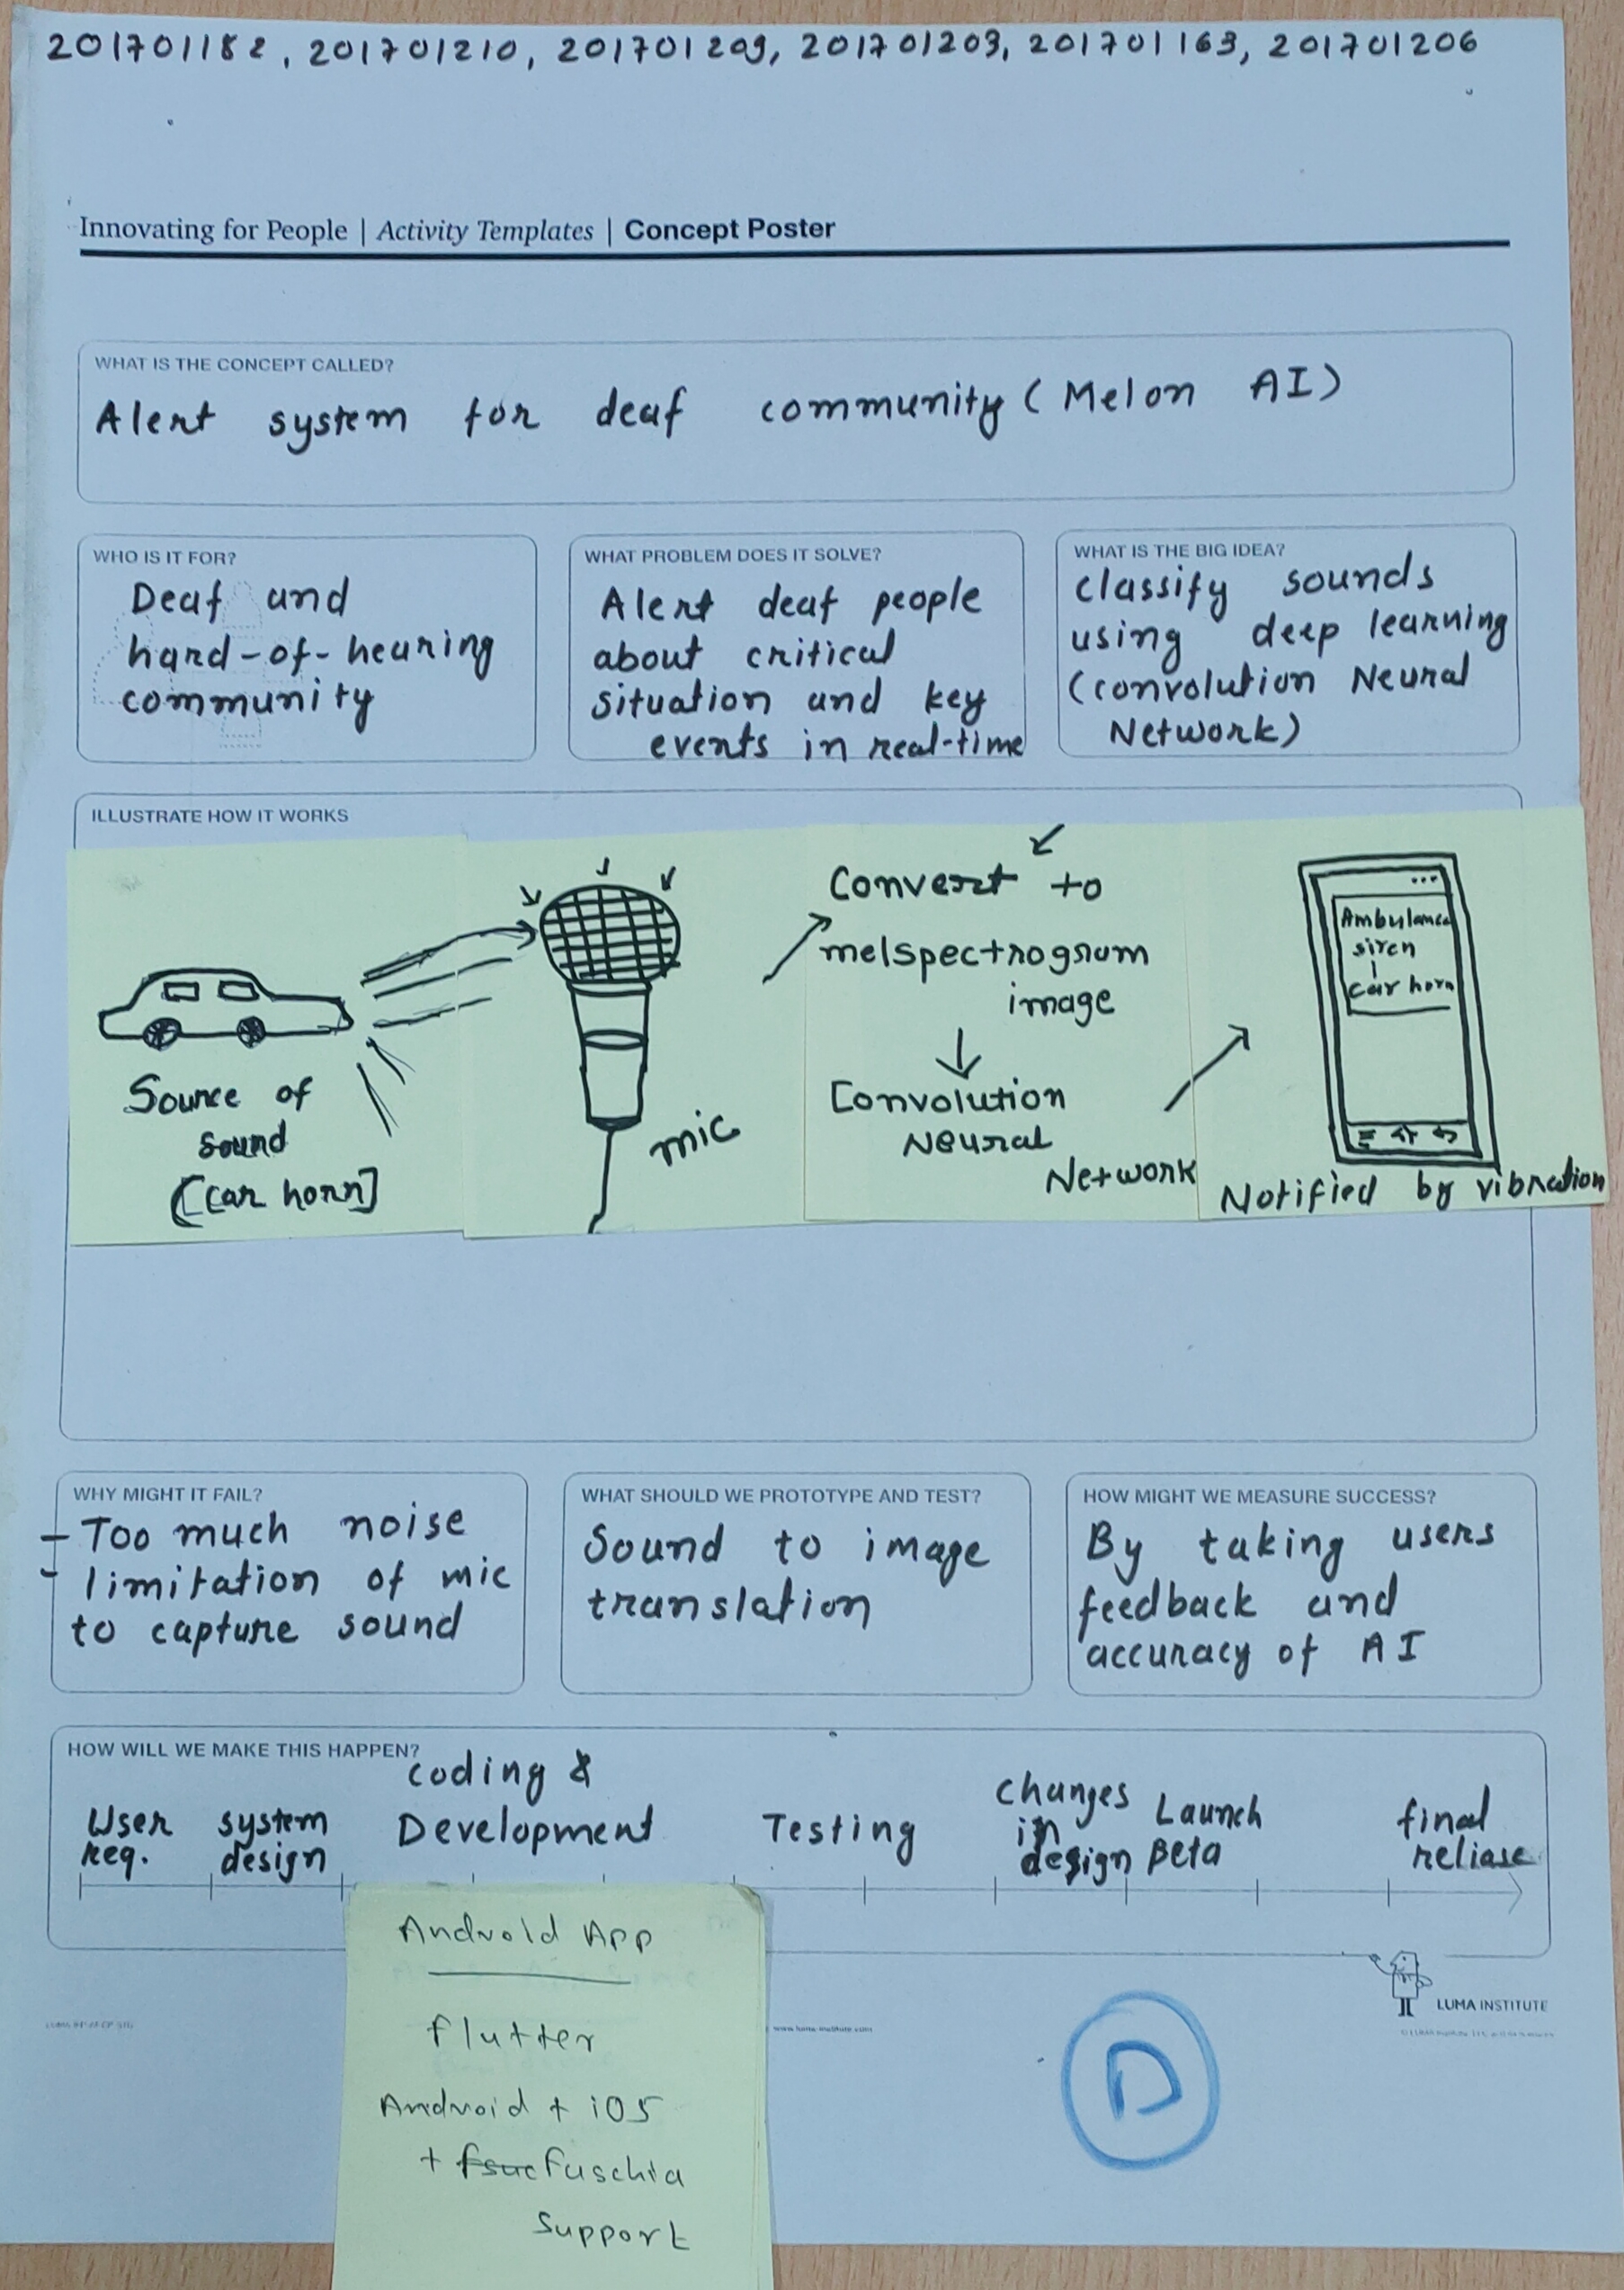 201701182, 201701210, 201701209, 201701203, 201701163, 201701206
Innovating for People | Activity Templates | Concept Poster
WHAT IS THE CONCEPT CALLED?
Alert system for deaf community (Melon AI)
WHO IS IT FOR?
Deaf and
hard-of-hearing
community
WHAT PROBLEM DOES IT SOLVE?
Alert deaf people
about critical
situation and key
events in real-time
WHAT IS THE BIG IDEA?
classify sounds
using deep learning
(convolution Neural
Network)
ILLUSTRATE HOW IT WORKS
Source of
sound
[car horn]
mic
Convert to
melspectrogram
image
Convolution
Neural
Network
Ambulance
siren
car horn
Notified by vibration
WHY MIGHT IT FAIL?
- Too much noise
- limitation of mic
to capture sound
WHAT SHOULD WE PROTOTYPE AND TEST?
Sound to image
translation
HOW MIGHT WE MEASURE SUCCESS?
By taking users
feedback and
accuracy of AI
HOW WILL WE MAKE THIS HAPPEN?
User
req.
system
design
coding &
Development
Testing
changes
in
design
Launch
Beta
final
reliase
Android App
flutter
Android + iOS
+ fuschia
support
D
LUMA INSTITUTE
www.luma-institute.com